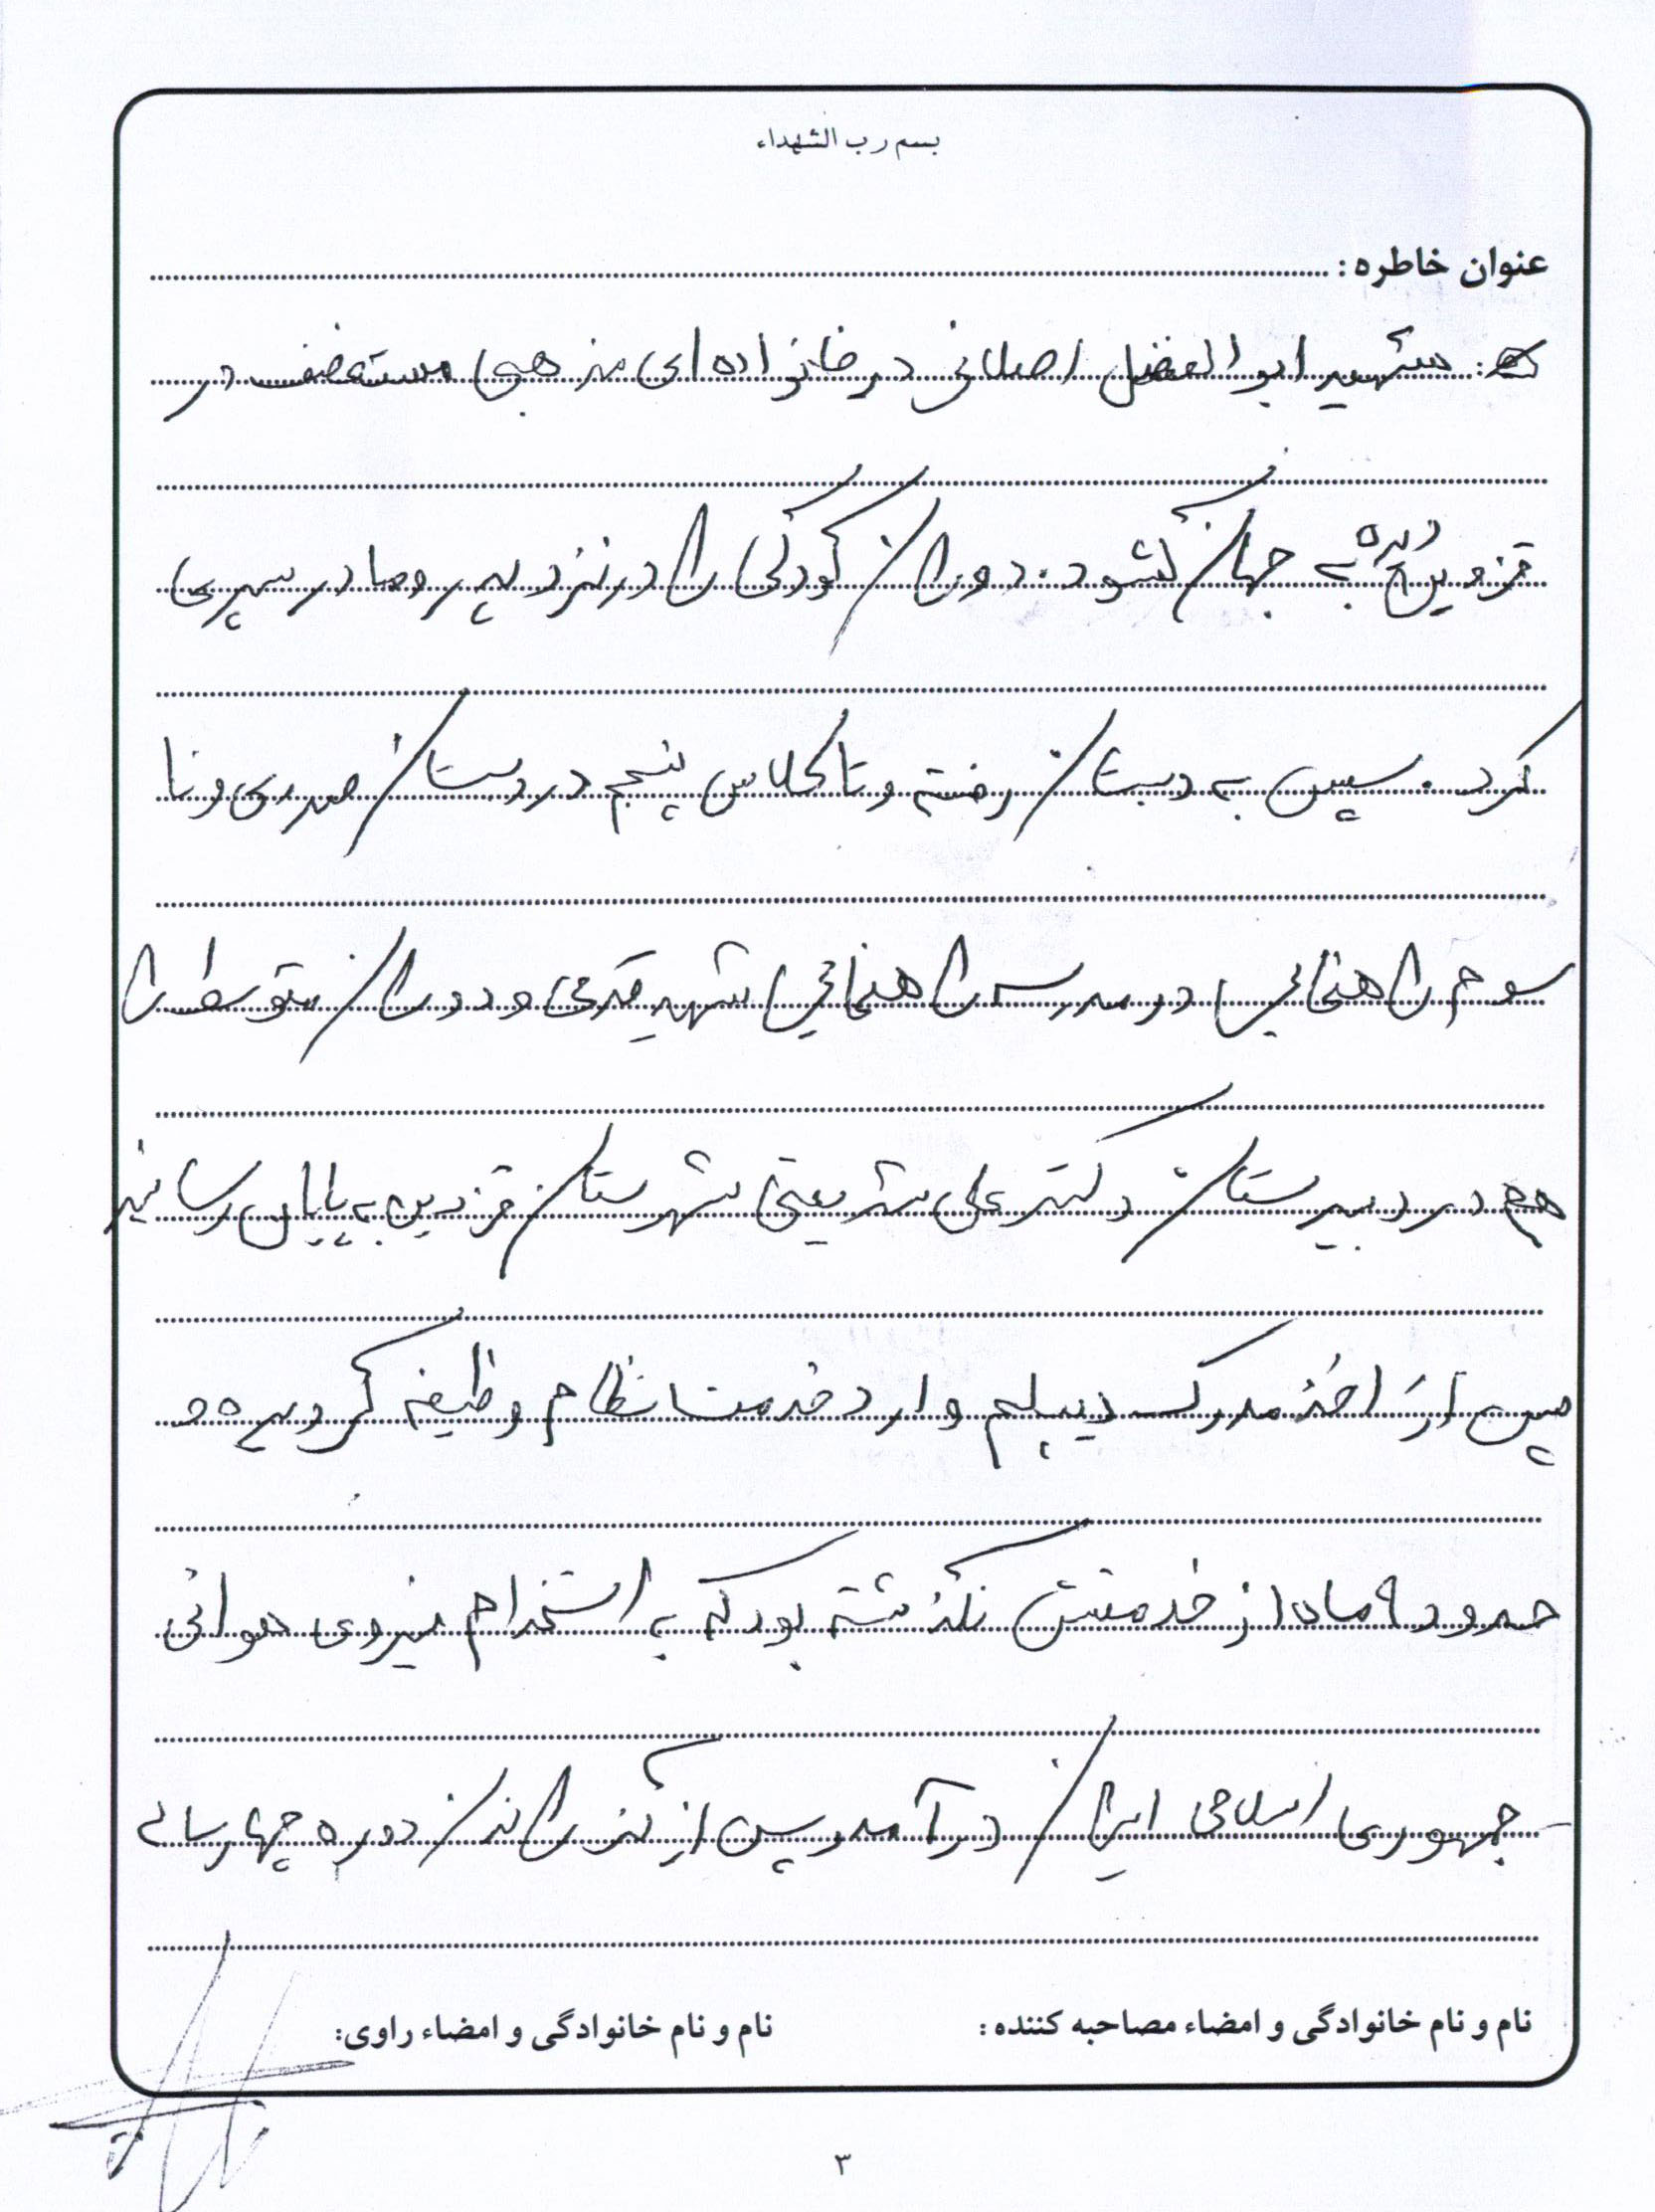 بسم رب الشهداء
عنوان خاطره :
: شهید ابوالفضل اصلانی در خانواده ای مذهبی مستضعف در
قزوین دیده به جهان گشود. دوران کودکی را در نزد پدر و مادر سپری
کرد. سپس به دبستان رفته و تا کلاس پنجم در دبستان صدری و تا
سوم راهنمائی در مدرسه راهنمائی شهید قدمی و دوران متوسطه را
هم در دبیرستان دکتر علی شریعتی شهرستان قزوین به پایان رسانید
پس از اخذ مدرک دیپلم وارد خدمت نظام وظیفه گردیده و
حدود ۹ ماه از خدمتش نگذشته بود که به استخدام نیروی هوائی
جمهوری اسلامی ایران در آمد و پس از گذراندن دوره چهار ساله
نام و نام خانوادگی و امضاء مصاحبه کننده : نام و نام خانوادگی و امضاء راوی:
۳